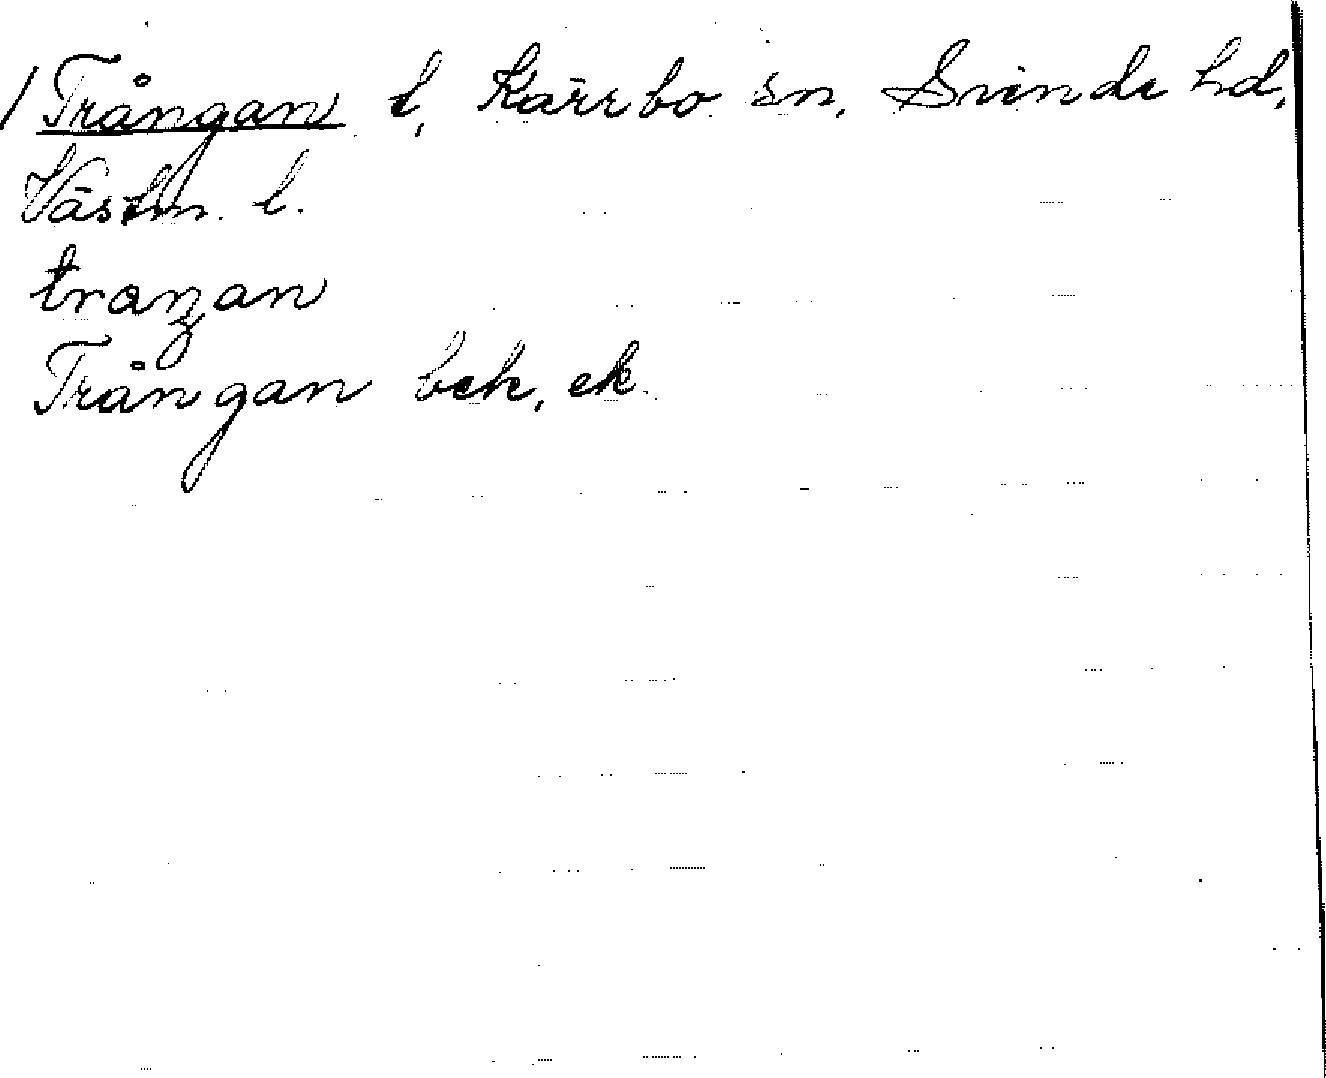 1 Trångan l, Kärrbo sn, Siende hd,
Västm. l.
traŋan
Trångan bek, ek.